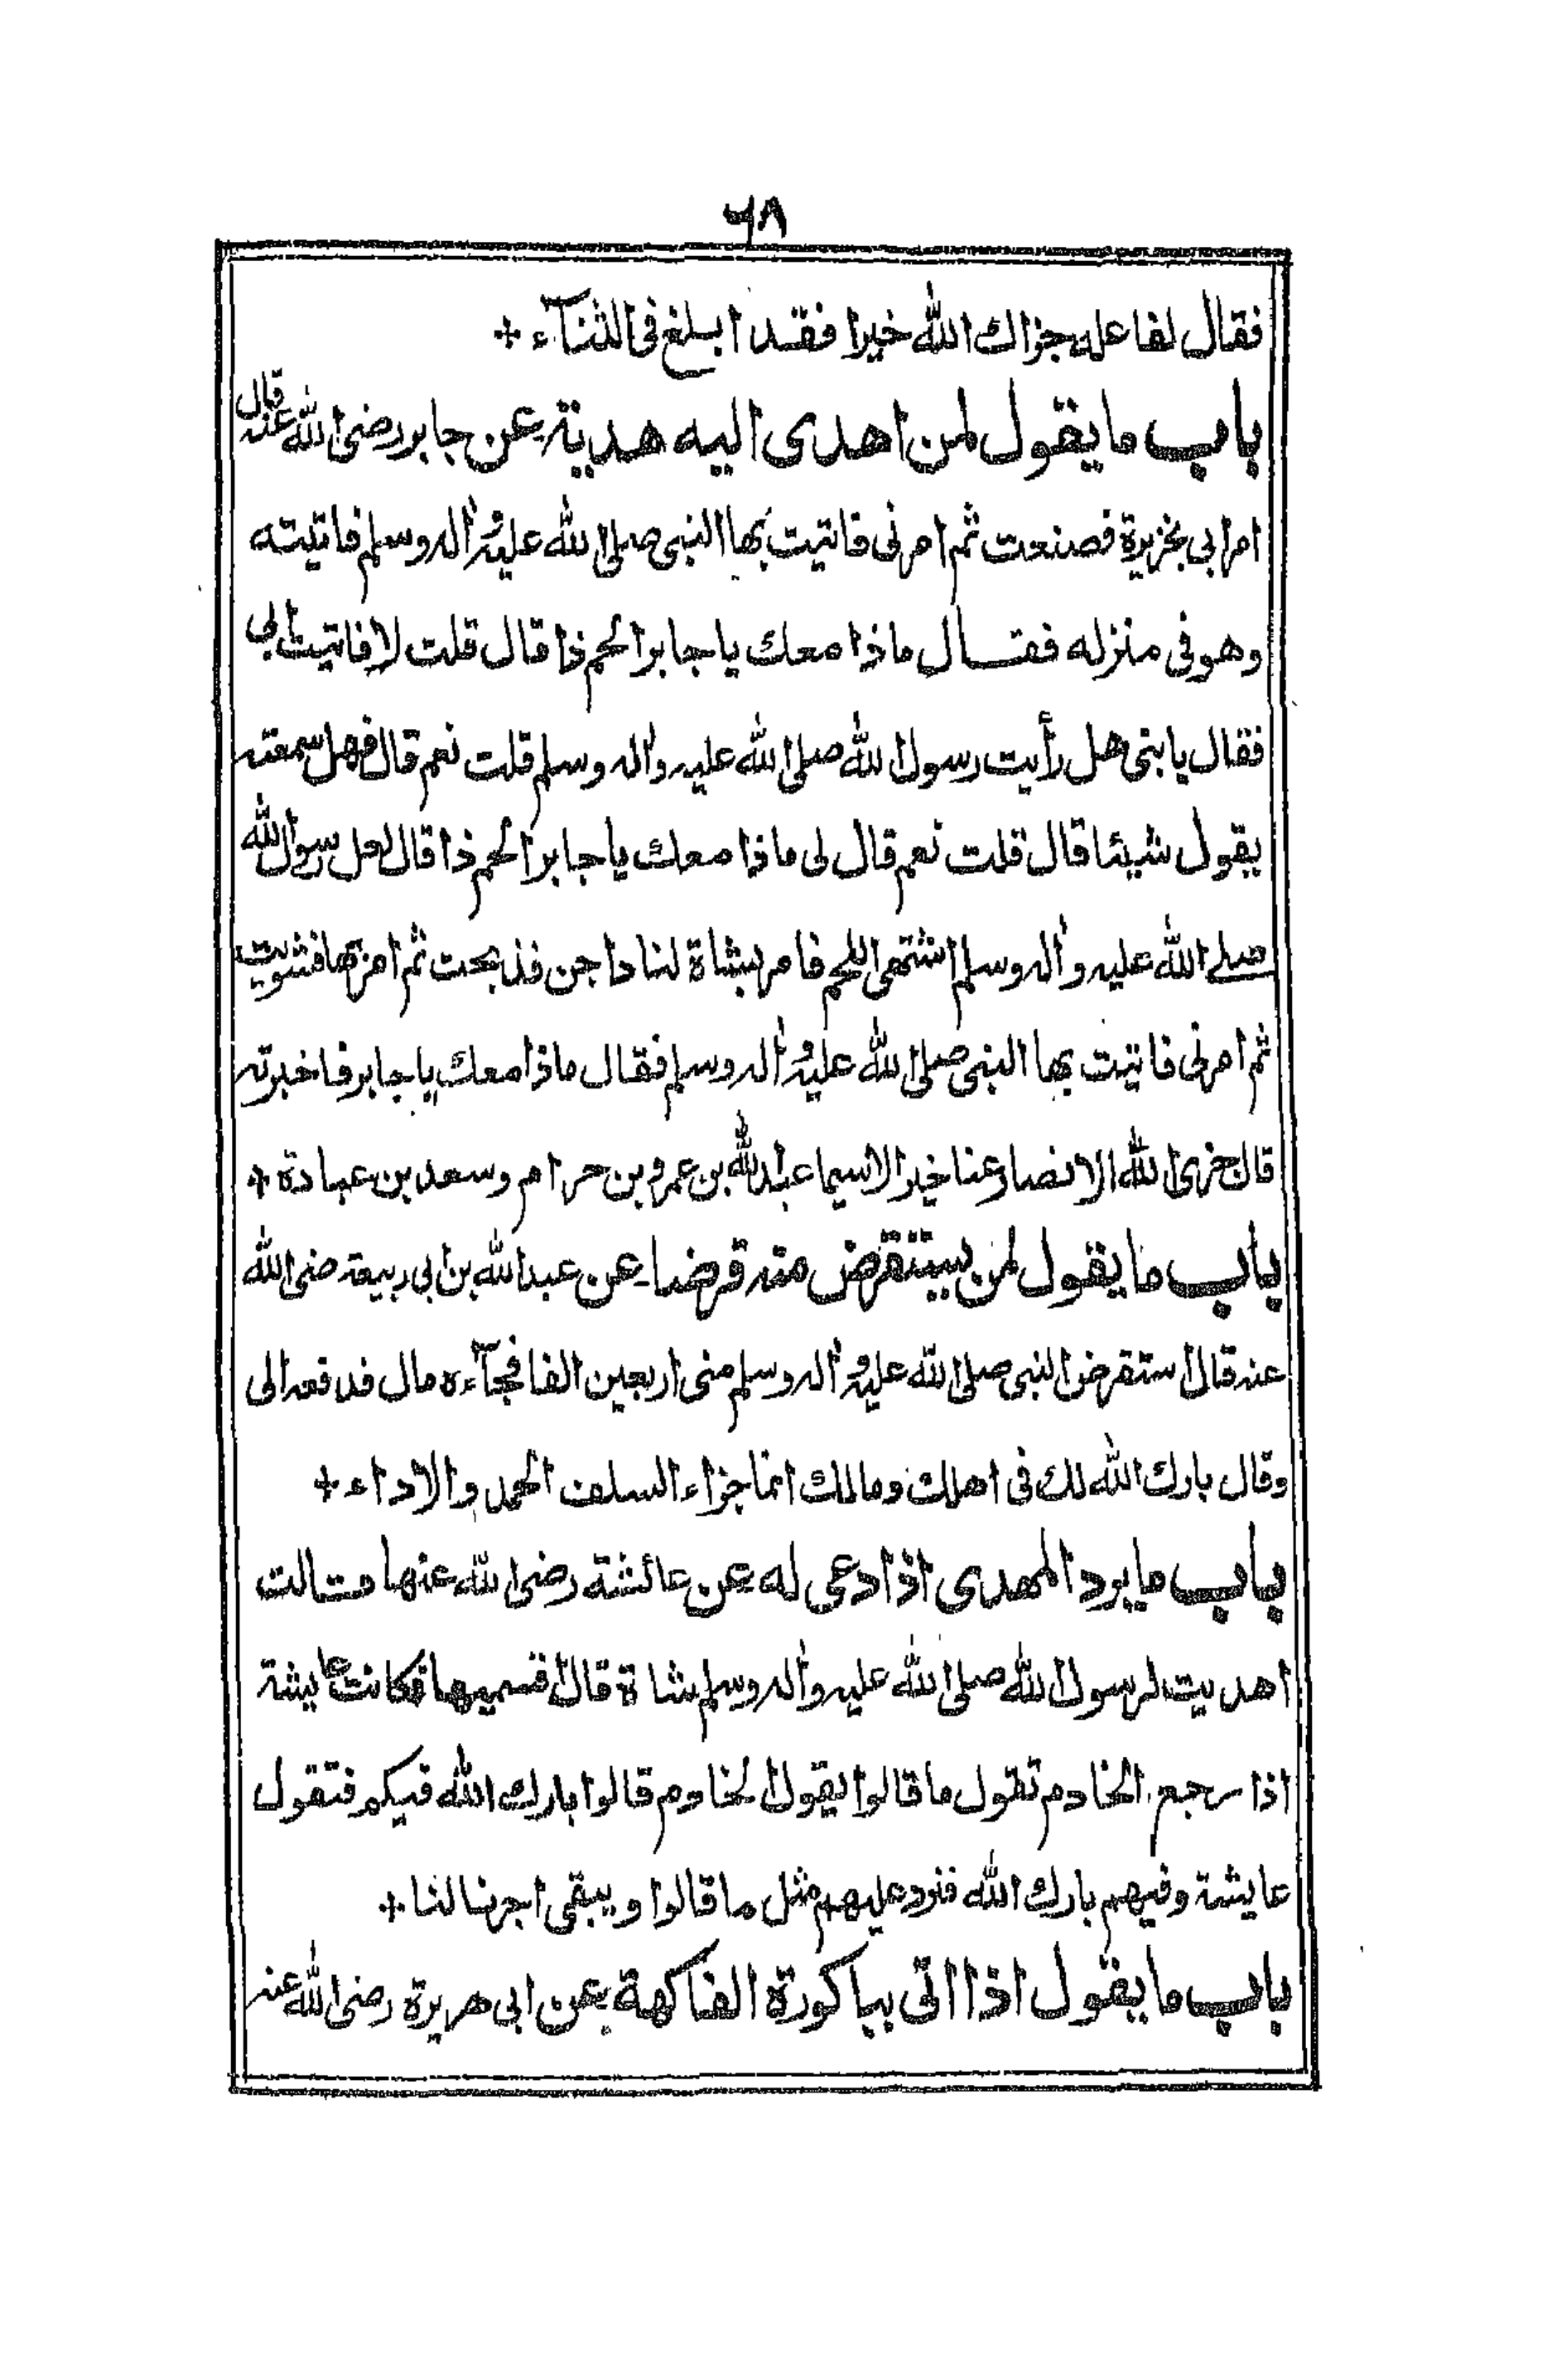 ٦٨
فقال لفاعله جزاك الله خيرا فقد ابلغ فى الثنآء +
باب ما يقول لمن اهدى اليه هدية عن جابر رضى الله عنه قال
امر ابى بخزيرة فصنعت ثم امرنى فاتيت بها النبى صلى الله عليه واله وسلم فاتيته
وهو فى منزله فقال ماذا معك يا جابر الحم ذا قال قلت لا فاتيت ابى
فقال يا بنى هل رأيت رسول الله صلى الله عليه واله وسلم قلت نعم قال فهل سمعته
يقول شيئا قال قلت نعم قال لى ماذا معك يا جابر الحم ذا قال لعل رسول الله
صلے الله عليه واله وسلم اشتهى اللحم فامر بشاة لنا داجن فذبحت ثم امر بها فشويت
ثم امرنى فاتيت بها النبى صلى الله عليه واله وسلم فقال ماذا معك يا جابر فاخبرته
قال جزى الله الانصار عنا خيرا لاسيما عبد الله بن عمرو بن حرام وسعد بن عبادة +
باب ما يقول لمن يستقرض منه قرضا عن عبد الله بن ابى ربيعة رضى الله
عنه قال استقرض النبى صلى الله عليه واله وسلم منى اربعين الفا فجآءه مال فدفعه الى
وقال بارك الله لك فى اهلك ومالك انما جزاء السلف الحمد والاداء +
باب ما يرد المهدى اذا دعى له عن عائشة رضى الله عنها قالت
اهديت لرسول الله صلى الله عليه واله وسلم شاة قال اقسميها فكانت عايشة
اذا رجع الخادم تقول ما قالوا يقول الخادم قالوا بارك الله فيكم فتقول
عايشة وفيهم بارك الله فنرد عليهم مثل ما قالوا ويبقى اجرنا لنا +
باب ما يقول اذا اتى بباكورة الفاكهة عن ابى هريرة رضى الله عنه